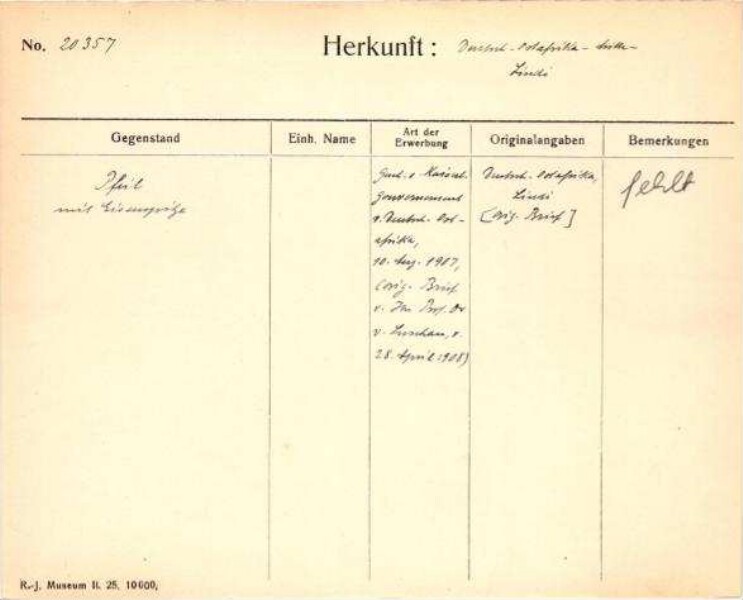 No. 20357
Herkunft: Deutsch-Ostafrika -
Lindi
Gegenstand
Einh. Name
Art der
Erwerbung
Originalangaben
Bemerkungen
Pfeil
mit Eisenspitze
v. Kaiserl.
Gouvernement
v. Deutsch-Ost-
afrika,
10. Aug. 1907,
(orig. Brief
v. Hrn Prof. Dr
v. Luschan, v.
28. April 1908)
Deutsch-Ostafrika,
Lindi
[Orig. Brief]
fehlt
R.-J. Museum II. 25. 10000,